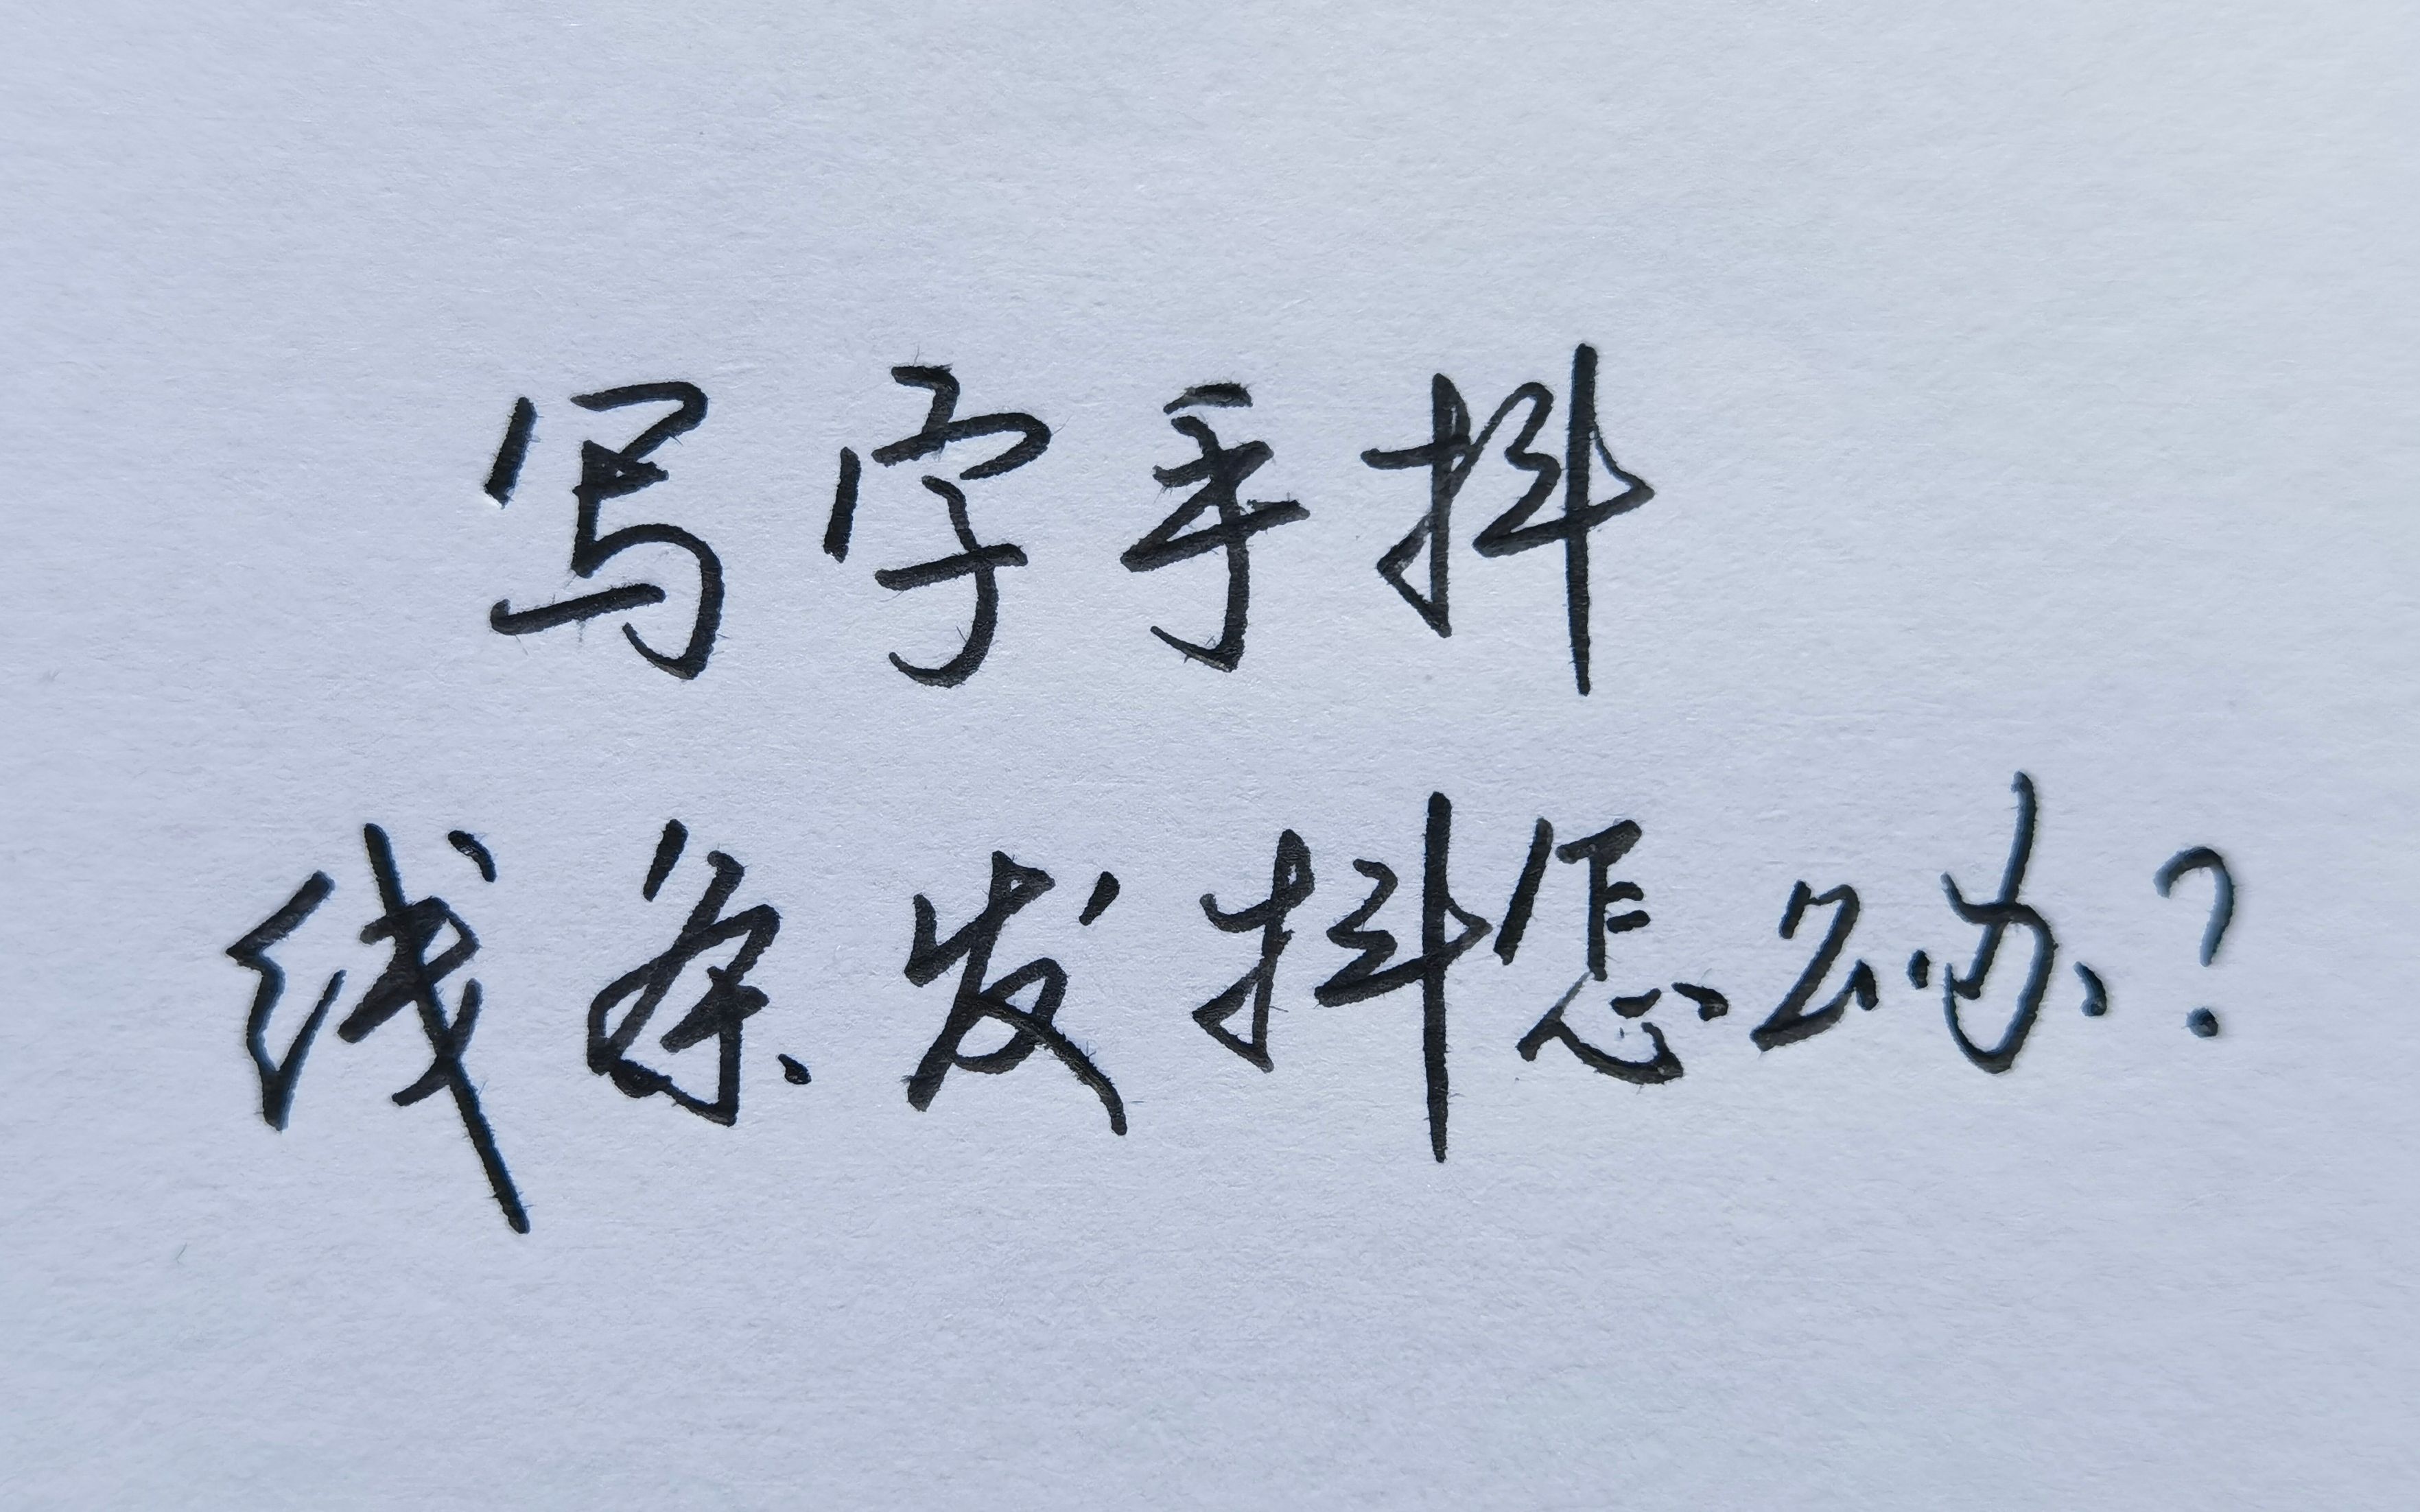 写字手抖
线条发抖怎么办?